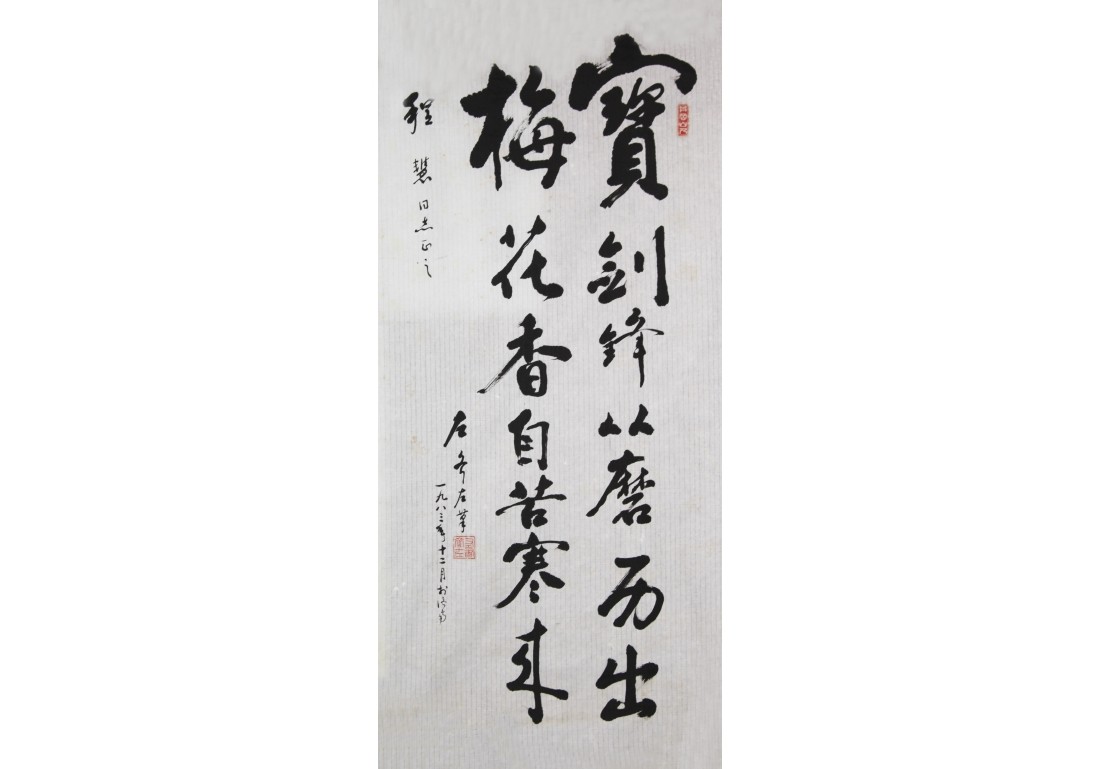 寶劍鋒从磨历出
梅花香自苦寒来
程慧同志正之
一九八三年十二月于济南